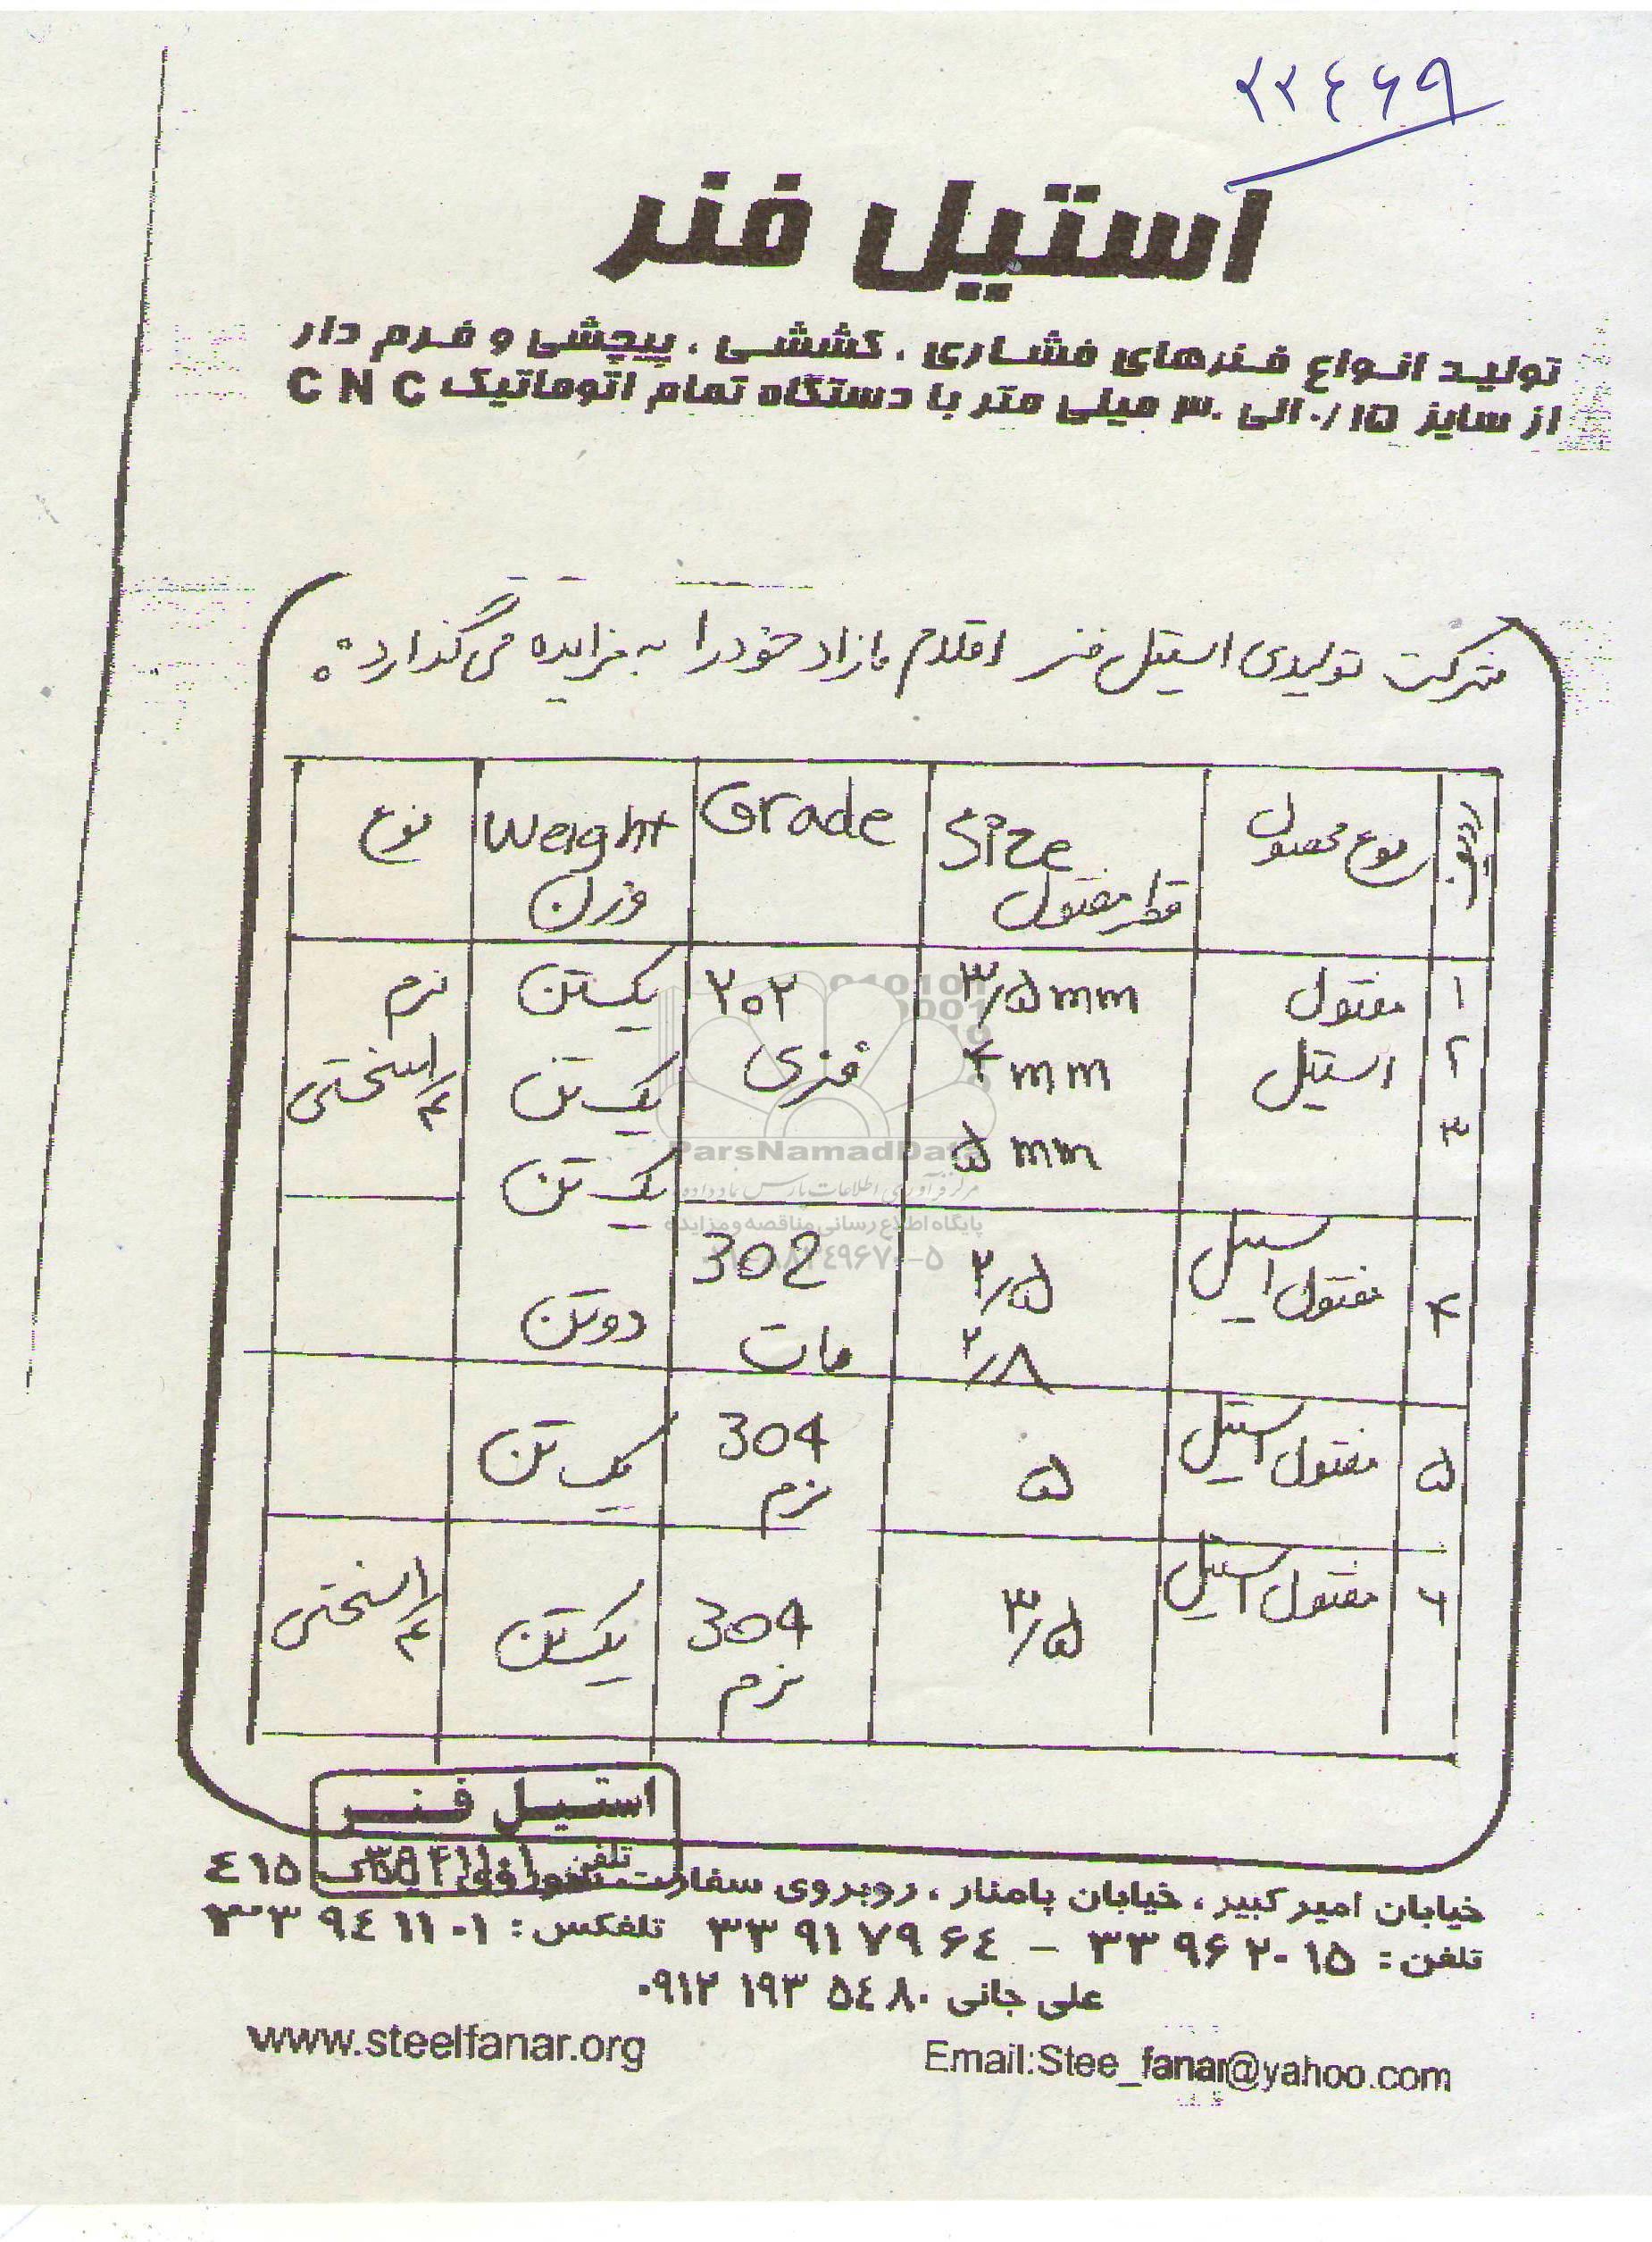 ۲۲٤۶۹
استیل فنر
تولید انواع فنرهای فشاری ، کششی ، پیچشی و فرم دار
از سایز ۰/۱۵ الی ۳۰ میلی متر با دستگاه تمام اتوماتیک CNC
شرکت تولیدی استیل فنر اقلام مازاد خود را به مزایده می‌گذارد:
ردیف نوع محصول Size قطر مفتول Grade Weight وزن نوع
۱ مفتول ۳/۵mm ۳۰۲ یک تن نرم
۲ استیل ۴mm فنری یک تن ۱/۴ سختی
۳ ۵mm یک تن
۴ مفتول استیل ۲/۵ 302 دو تن
۲/۸ مات
۵ مفتول استیل ۵ 304 یک تن
نرم
۶ مفتول استیل ۳/۵ 304 یک تن ۱/۴ سختی
نرم
ParsNamadData
مرکز فرآوری اطلاعات پارس نماد داده
پایگاه اطلاع رسانی مناقصه و مزایده
استیل فنر
تلفن
خیابان امیر کبیر ، خیابان پامنار ، روبروی سفارت ٤۱۵
تلفن : ۳۳۹۶۲۰۱۵ – ۳۳۹۱۷۹۶٤ تلفکس : ۳۳۹٤۱۱۰۱
علی جانی ۰۹۱۲ ۱۹۳ ۵٤۸۰
www.steelfanar.org
Email:Stee_fanar@yahoo.com